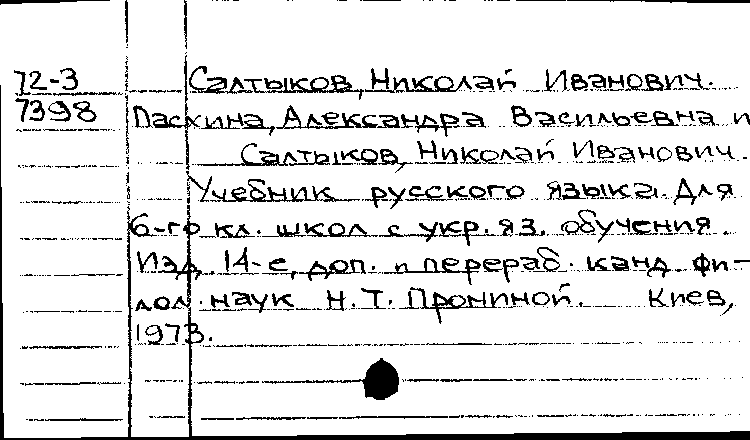 72-3 Салтыков, Николай Иванович.
7398 Пасхина, Александра Васильевна и
Салтыков, Николай Иванович.
Учебник русского языка. Для
6-го кл. школ с укр. яз. обучения.
Изд. 14-е, доп. и перераб. канд. фи-
лол. наук Н. Т. Прониной. Киев,
1973.